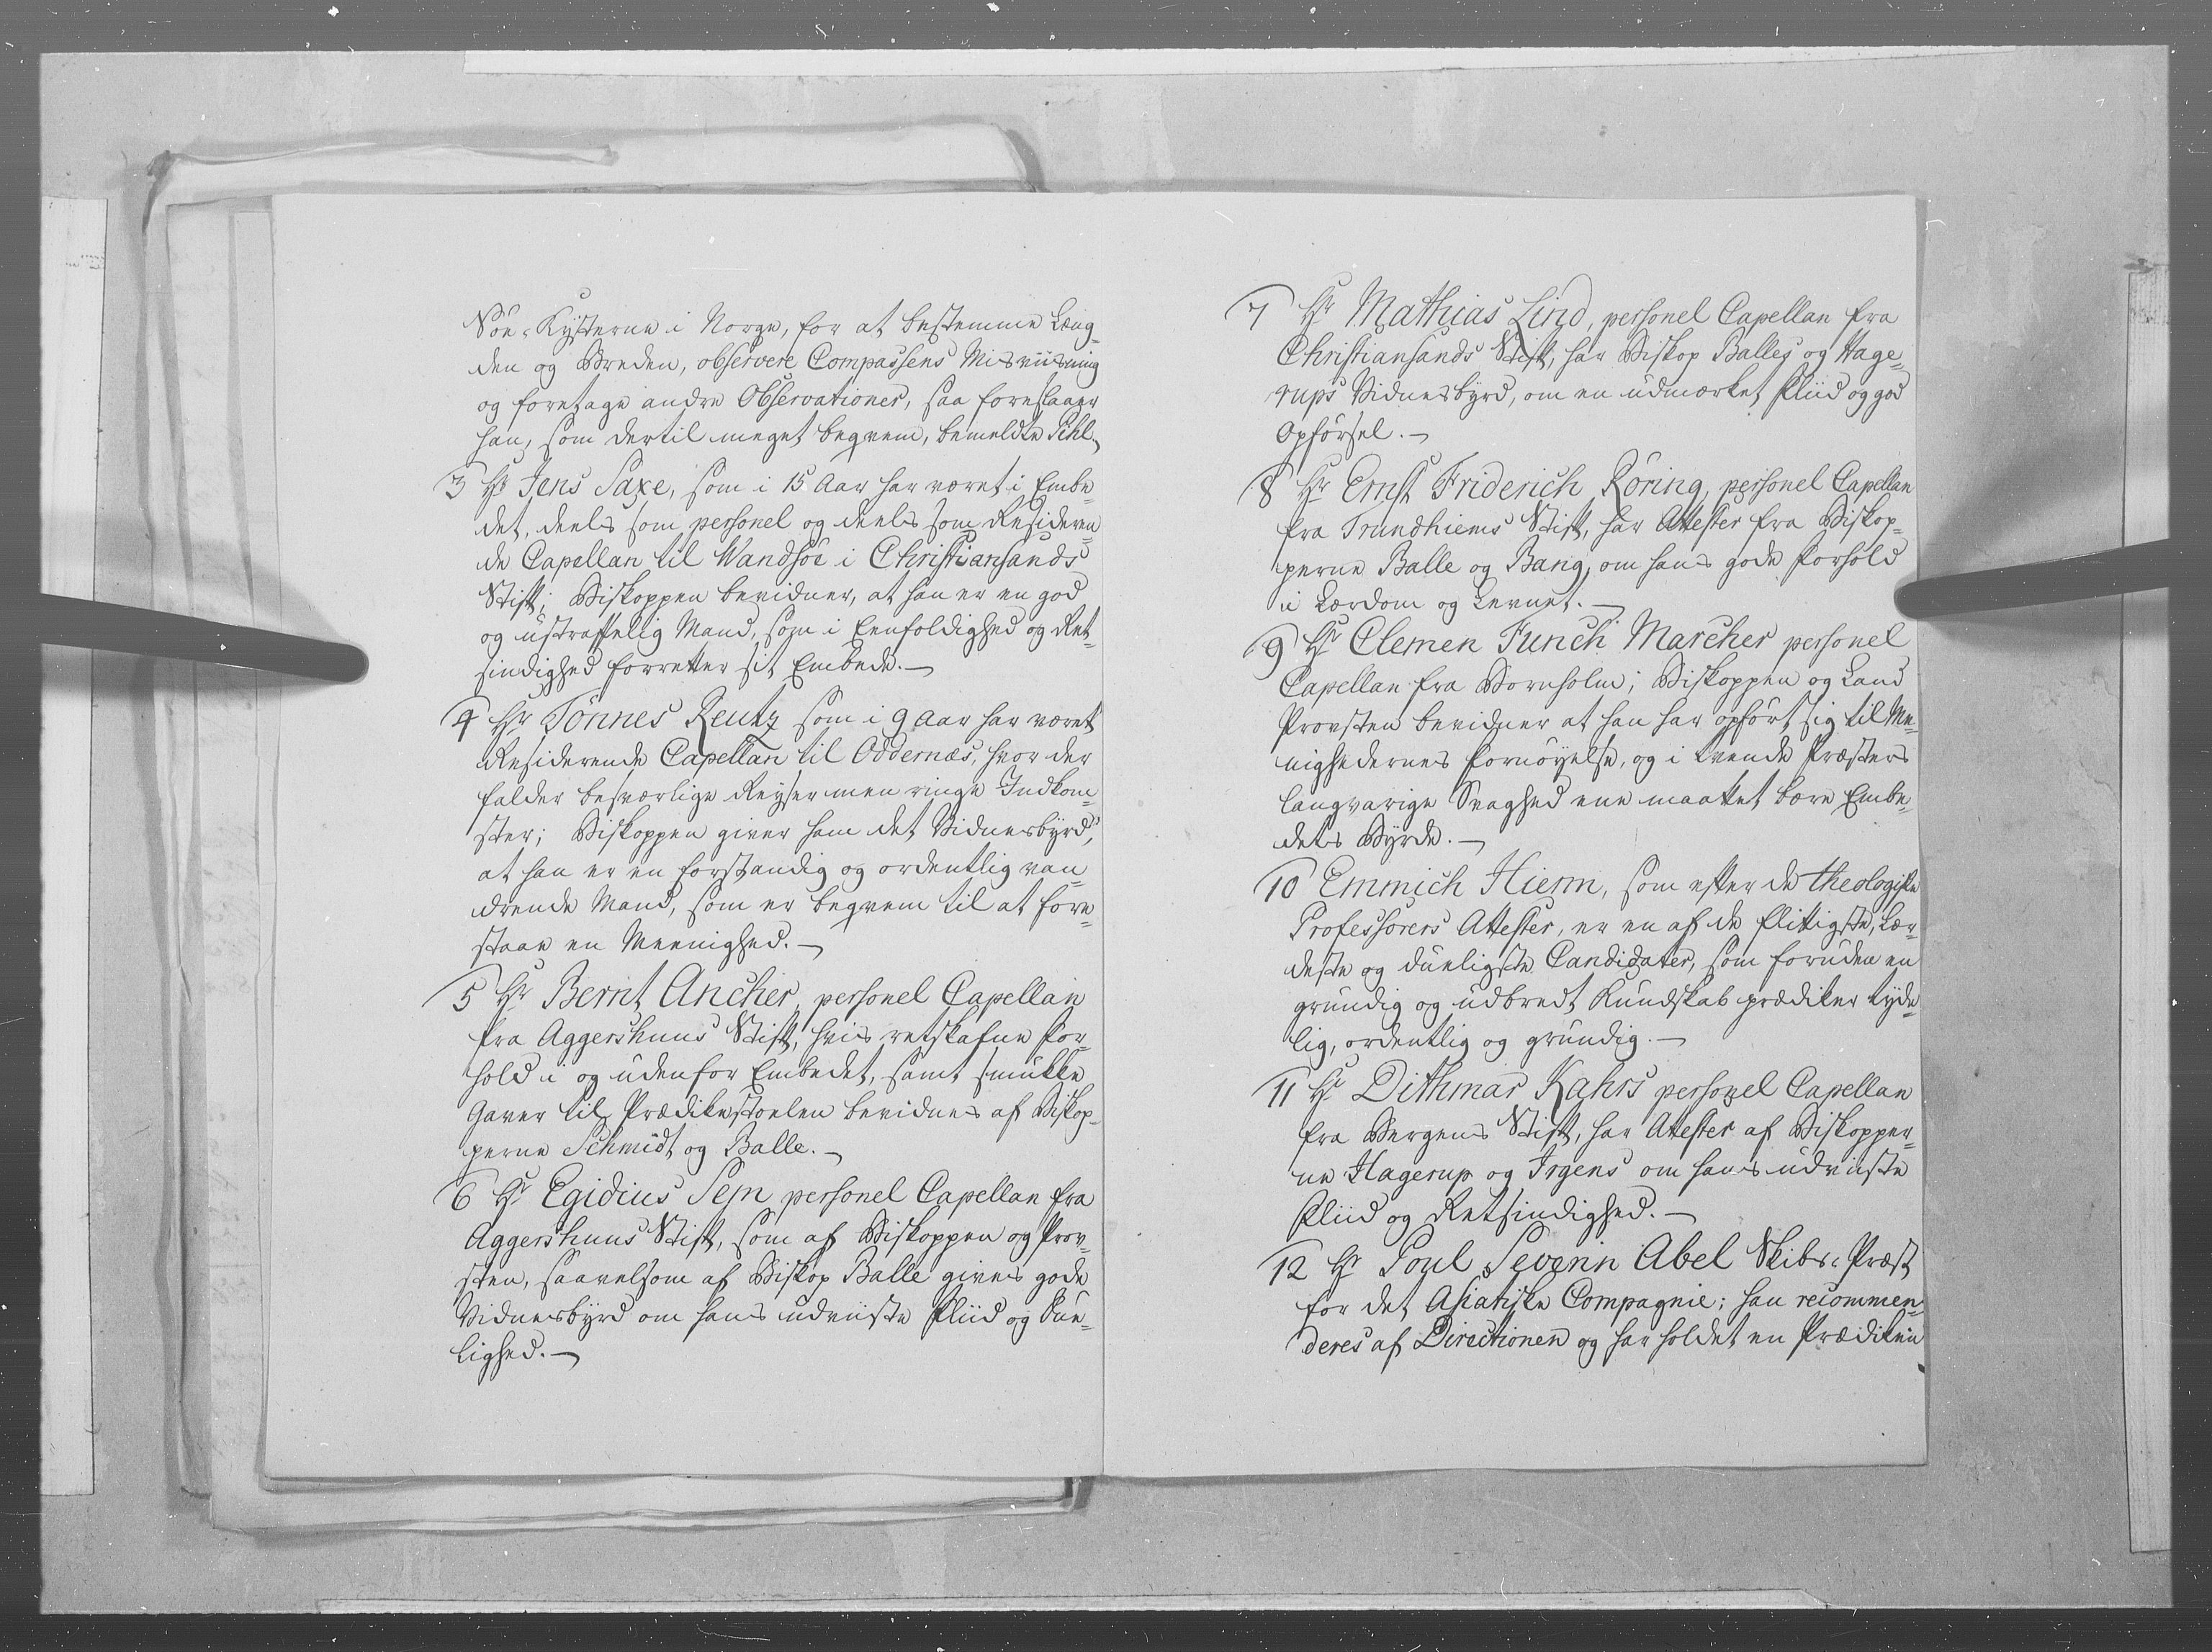 Søe-Kysterne i Norge, for at bestemme Læng-
den og Breden, observere Compassens Misviisning
og foretage andre Observationer, saa foreslaaer
han, som dertil meget beqvem, bemeldte Pihl.
3 Hr Jens Saxe, som i 15 Aar har været i Embe-
det, deels som personel og deels som Resideren-
de Capellan til Wandsøe i Christiansands
Stift; Biskoppen bevidner, at han er en god
og ustraffelig Mand, som i Eenfoldighed og Ret-
sindighed forretter sit Embede.—
4 Hr Tönnes Reutz som i 9 Aar har været
Residerende Capellan til Oddernæs, hvor der
falder besværlige Reyser men ringe Indkom-
ster; Biskoppen giver ham det Vidnesbyrd,
at han er en forstandig og ordentlig van-
drende Mand, som er beqvem til at fore-
staae en Meenighed.—
5 Hr Bernt Ancher, personel Capellan
fra Aggershuus Stift, hvis retskafne For-
hold i og udenfor Embedet, samt smukke
Gaver til Prædikestoelen bevidnes af Biskop-
perne Schmidt og Balle.—
6 Hr Egidius Sem personel Capellan fra
Aggershuus Stift, som af Biskoppen og Prov-
sten, saavelsom af Biskop Balle gives gode
Vidnesbyrd om hans udviiste Fliid og Due-
lighed.—
7 Hr Mathias Lind, personel Capellan fra
Christiansands Stift, har Biskop Balles og Hage-
rups Vidnesbyrd, om en udmærket Fliid og god
Opførsel.—
8 Hr Ernst Friderich Röring, personel Capellan
fra Trundhiems Stift, har Attester fra Biskop-
perne Balle og Bang, om hans gode Forhold
i Lærdom og Levnet.—
9 Hr Clemen Funch Marcher personel
Capellan fra Bornholm; Biskoppen og Land
Provsten bevidner at han har opført sig til Me-
nighedernes Fornøyelse, og i tvende Præsters
langvarige Svaghed ene maattet bære Embe-
dets Byrde.—
10 Emmich Hierm, som efter de theologiske
Professorers Attester, er en af de flittigste, lær-
deste og dueligste Candidater, som foruden en
grundig og udbredt Kundskab prædiker tyde-
lig, ordentlig og grundig.—
11 Hr Dithmar Kahrs personel Capellan
fra Bergens Stift, har Attester af Biskopper-
ne Hagerup og Irgens om hans udviiste
Fliid og Retsindighed.—
12 Hr Poul Severin Abel Skibs-Præst
for det Asiatiske Compagnie; han recommen-
deres af Directionen og har holdet en Prædiken